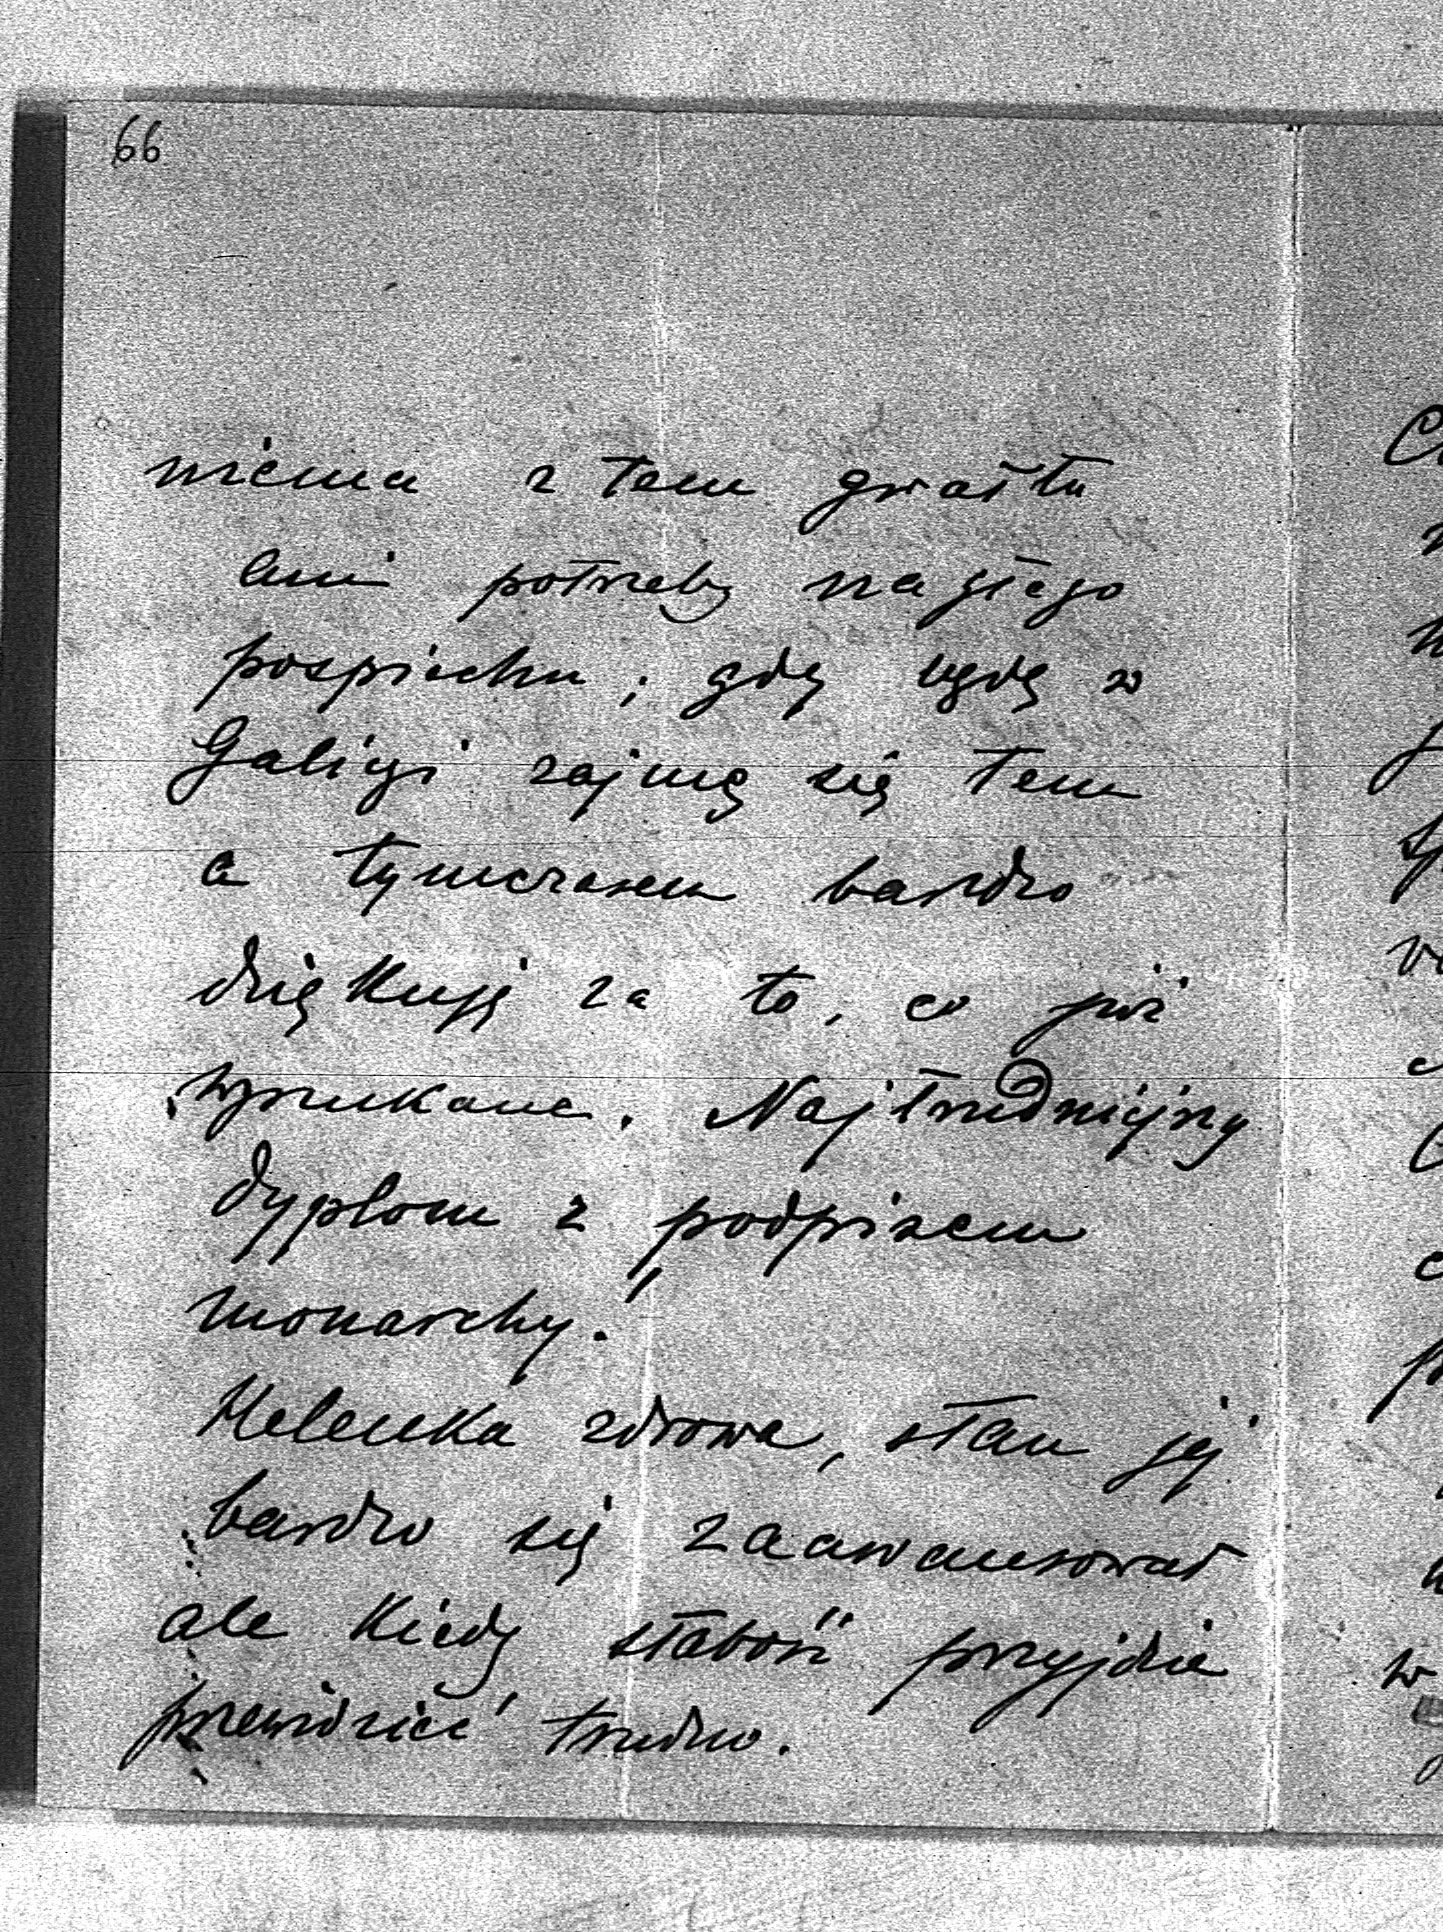 66
niema z tem gwałtu
ani potrzeby nagłego
pospiechu; gdy będę w
Galicyi zajmę się tem
a tymczasem bardzo
dziękuję za to, co już
wyszukane. Najtrudniejszy
dyplom z podpisem
monarchy!
Helenka zdrowa, stan jej
bardzo się zaawansował
ale kiedy słabość przyjdzie
przewidzieć trudno.